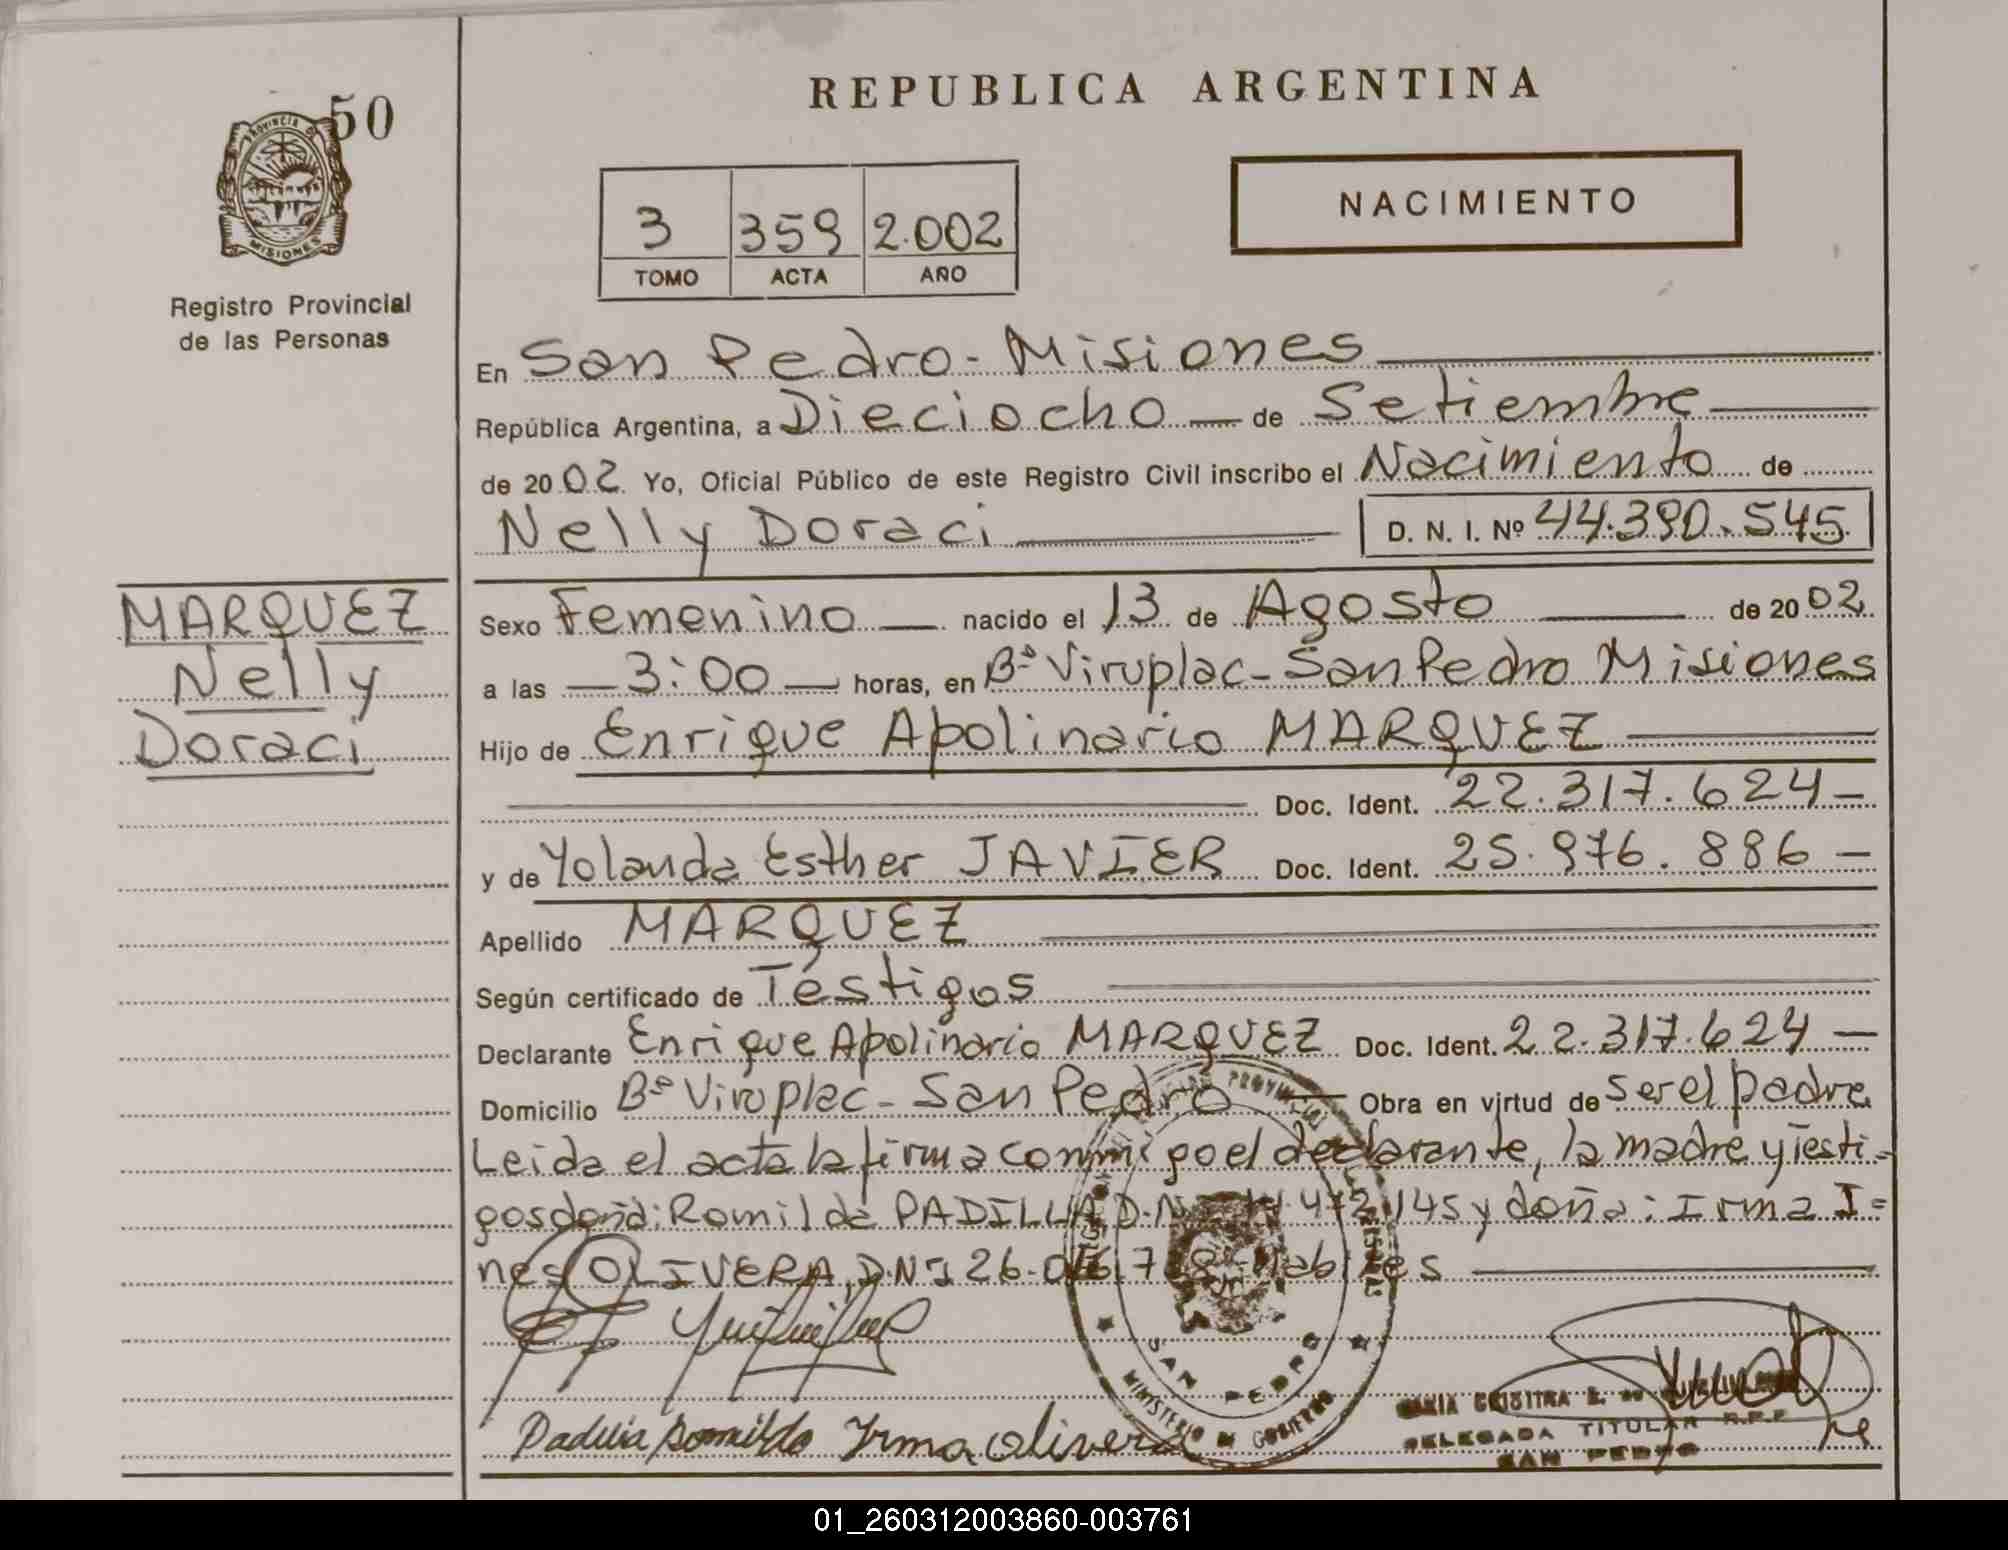 REPUBLICA ARGENTINA
50
PROVINCIA DE
MISIONES
Registro Provincial
de las Personas
3 359 2.002
TOMO ACTA AÑO
NACIMIENTO
En San Pedro - Misiones
República Argentina, a Dieciocho de Setiembre
de 2002 Yo, Oficial Público de este Registro Civil inscribo el Nacimiento de
Nelly Doraci D. N. I. Nº 44.390.545
MARQUEZ
Nelly
Doraci
Sexo Femenino nacido el 13 de Agosto de 2002
a las 3:00 horas, en Bº Viruplac - San Pedro Misiones
Hijo de Enrique Apolinario MARQUEZ
Doc. Ident. 22.317.624
y de Yolanda Esther JAVIER Doc. Ident. 25.976.886
Apellido MARQUEZ
Según certificado de Testigos
Declarante Enrique Apolinario MARQUEZ Doc. Ident. 22.317.624
Domicilio Bº Viroplac - San Pedro Obra en virtud de ser el padre
Leida el acta la firma conmigo el declarante, la madre y testi-
gos doña: Romilda PADILLA D.N 472 145 y doña: Irma I=
nes OLIVERA, D.N.I 26.0
Padilla Romilda Irma Olivera
SAN PEDRO
MINISTERIO DE GOBIERNO
DELEGADA TITULAR R.P.P.
SAN PEDRO
01_260312003860-003761